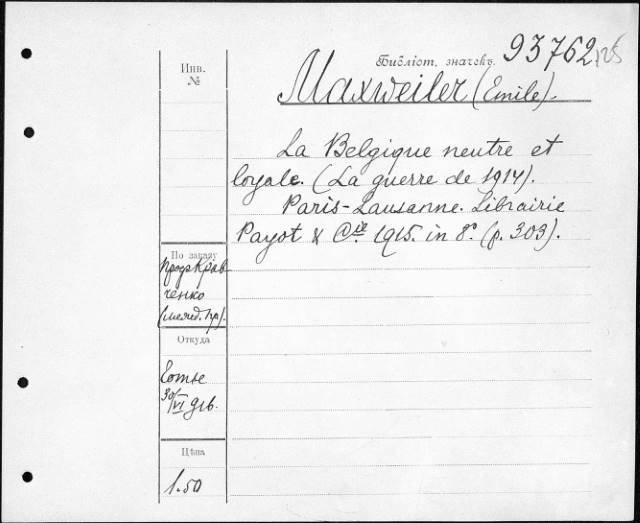 Инв.
№
Библіот. значекъ. 93762
Maxweiler (Emile).
La Belgique neutre et
loyale. (La guerre de 1914).
Paris-Lausanne. Librairie
Payot & Cie. 1915. in 8°. (p. 303).
По заказу
Проф Крав-
ченко
Откуда
30/VI 916.
Цѣна
1.50